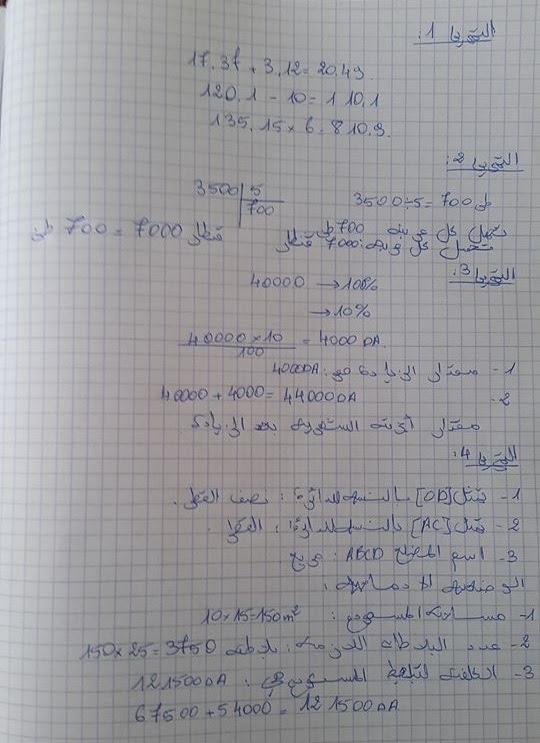 التمرين 1:
17.37 + 3.12 = 20.49
120.1 - 10 = 110.1
135.15 × 6 = 810.9
التمرين 2:
3500 | 5
700
3500 ÷ 5 = 700 طن
تحمل كل عربة 700 طن
تحمل كل عربة: 7000 قنطار
700 طن = 7000 قنطار
التمرين 3:
40000 → 100%
→ 10%
40000 × 10 / 100 = 4000 DA
1- مقدار الزيادة هي: 4000DA
2- 40000 + 4000 = 44000DA
مقدار أجرته الشهرية بعد الزيادة
التمرين 4:
1- يمثل [OD] بالنسبة للدائرة: نصف القطر.
2- يمثل [AC] بالنسبة للدائرة: القطر.
3- اسم المضلع ABCD: مربع
الوضعية الادماجية:
1- مساحة المسبح: 10×15=150m²
2- عدد البلاطات اللازمة: 150×25=3750 بلاطة
3- التكلفة لتبليط المسبح هي: 121500DA
67500 + 54000 = 121500DA